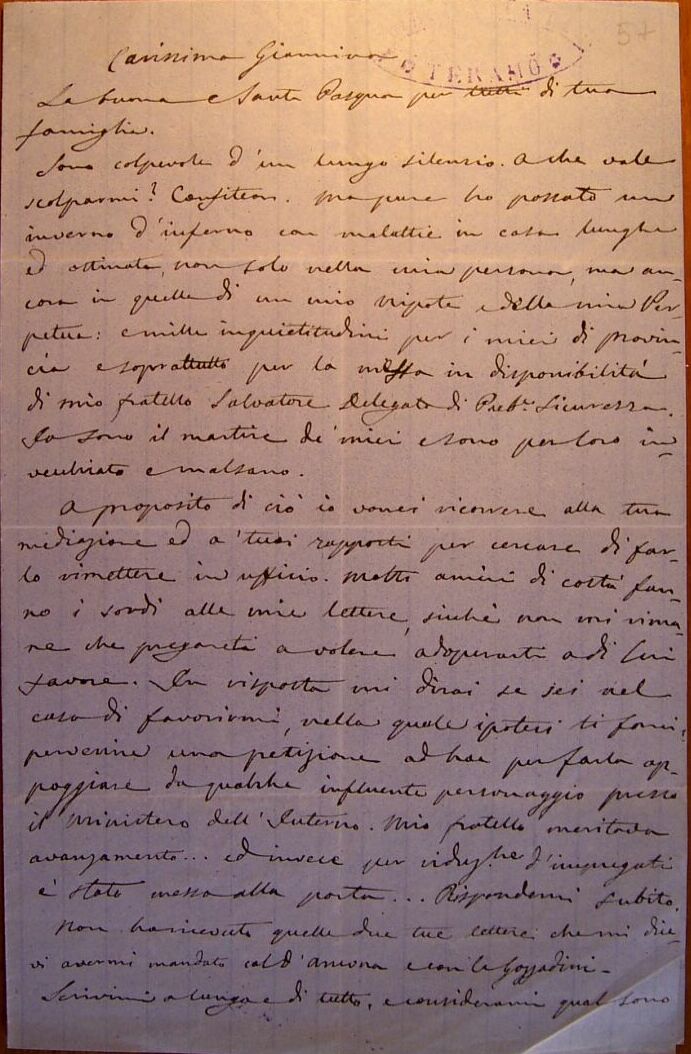 57
TERAMO
Carissimo Giannina
La buona e Santa Pasqua per tutti di tua
famiglia.
Sono colpevole d'un lungo silenzio. A che vale
scolparmi? Confiteor. Ma pure ho passato un
inverno d'inferno con malattie in casa lunghe
ed ostinate, non solo nella mia persona, ma an-
cora in quelle di un mio nipote e della mia Per-
petua: e mille inquietitudini per i miei di provin-
cia e soprattutto per la messa in disponibilità
di mio fratello Salvatore Delegato di Pubb. Sicurezza.
Io sono il martire de' miei e sono per loro in-
vecchiato e malsano.
A proposito di ciò io vorrei ricorrere alla tua
mediazione ed a' tuoi rapporti per cercare di far-
lo rimettere in ufficio. Molti amici di costà fan-
no i sordi alle mie lettere, sicché non mi rima-
ne che pregarti a volere adoperarti a di lui
favore. In risposta mi dirai se sei nel
caso di favorirmi, nella quale ipotesi ti farei
pervenire una petizione ad hoc per farla ap-
poggiare da qualche influente personaggio presso
il Ministero dell'Interno. Mio fratello meritava
avanzamento... ed invece per d'impiegati
è stato messo alla porta... Rispondemi subito.
Non ho ricevuto quelle due tue lettere che mi dice-
vi avermi mandato col d'Ancona e con la Gozzadini.
Scrivimi a lungo e di tutto, e considerami qual sono